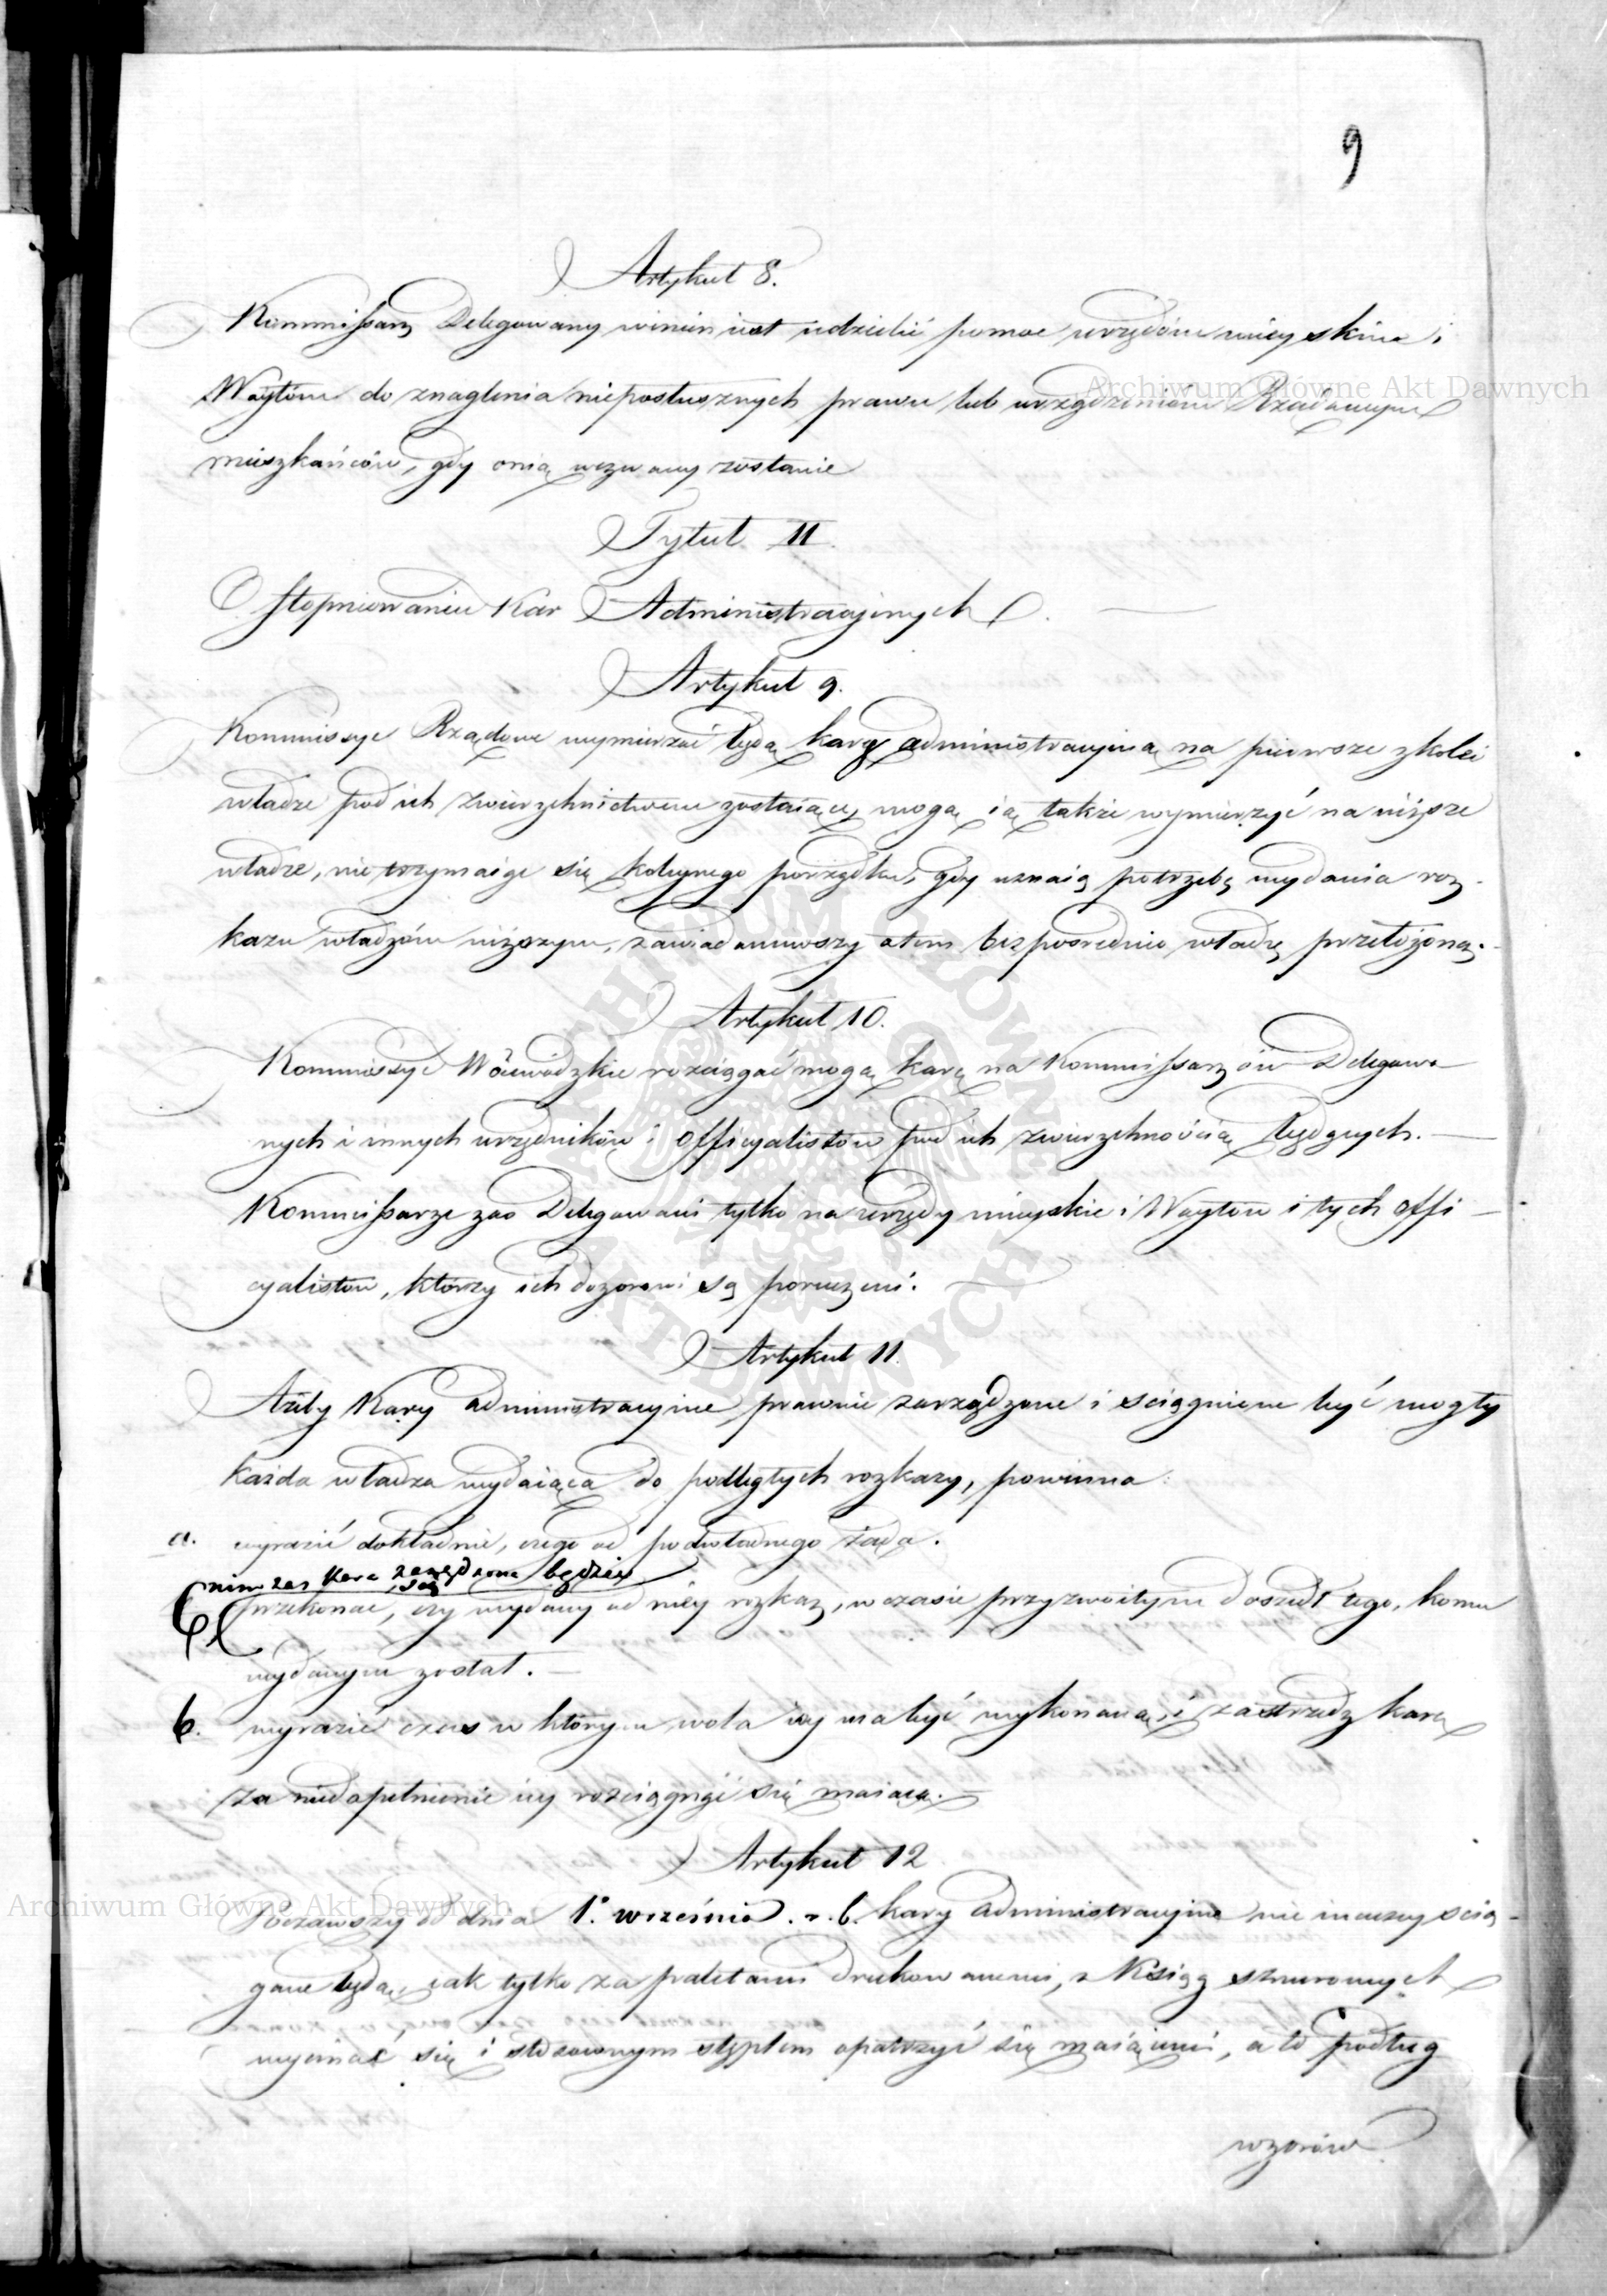 9
Artykuł 8.
Kommissarz Delegowany winien iest udzielić pomoc urzędom mieyskim i
Woytom do znaglenia nieposłusznych prawu lub urządzeniom Rządowym
mieszkańców, gdy onią wezwany zostanie
Tytuł II.
O stopniowaniu Kar Administracyinych.
Artykuł 9.
Kommissye Rządowe wymierzać będą karę administracyiną na pierwsze z kolei
władze pod ich zwierzchnictwem zostaiące, mogą ią także wymierzyć na niższe
władze, nie trzymaiąc się koleynego porządku, gdy uznaią potrzebę wydania roz-
kazu władzom niższym, zawiadomiwszy otem bezpośrednio władzę przełożoną.
Artykuł 10.
Kommissye Woiewódzkie rozciągać mogą karę na Kommissarzów Delegowa-
nych i innych urzędników i officyalistów pod ich zwierzchnością będących.
Kommissarze zaś Delegowani tylko na urzędy mieyskie i Woytów i tych offi-
cyalistów, którzy ich dozorowi są poruczeni.
Artykuł 11.
Ażeby Kary administracyine prawnie zarządzone i ściągnione być mogły
każda władza wydaiąca do podległych rozkazy, powinna:
a. wyrazić dokładnie, czego od podwładnego żąda.
nim zaś kara zarządzona będzie
przekonać się, czy wydany od niey rozkaz, w czasie przyzwoitym doszedł tego, komu
wydanym został.
b. wyrazić czas w którym wola iey ma być wykonaną, i zastrzedz karę
za niedopełnienie iey rozciągnąć się maiącą.
Artykuł 12
Począwszy od dnia 1. września r. b. kary administracyine nie inaczey ścią-
gane będą, iak tylko za paletami drukowanemi, z Ksiąg sznurowych
wycinać się i stosownym stęplem opatrzyć się maiącemi, a to podług
wzorów
Archiwum Główne Akt Dawnych
Archiwum Główne Akt Dawnych
ARCHIWUM GŁÓWNE AKT DAWNYCH